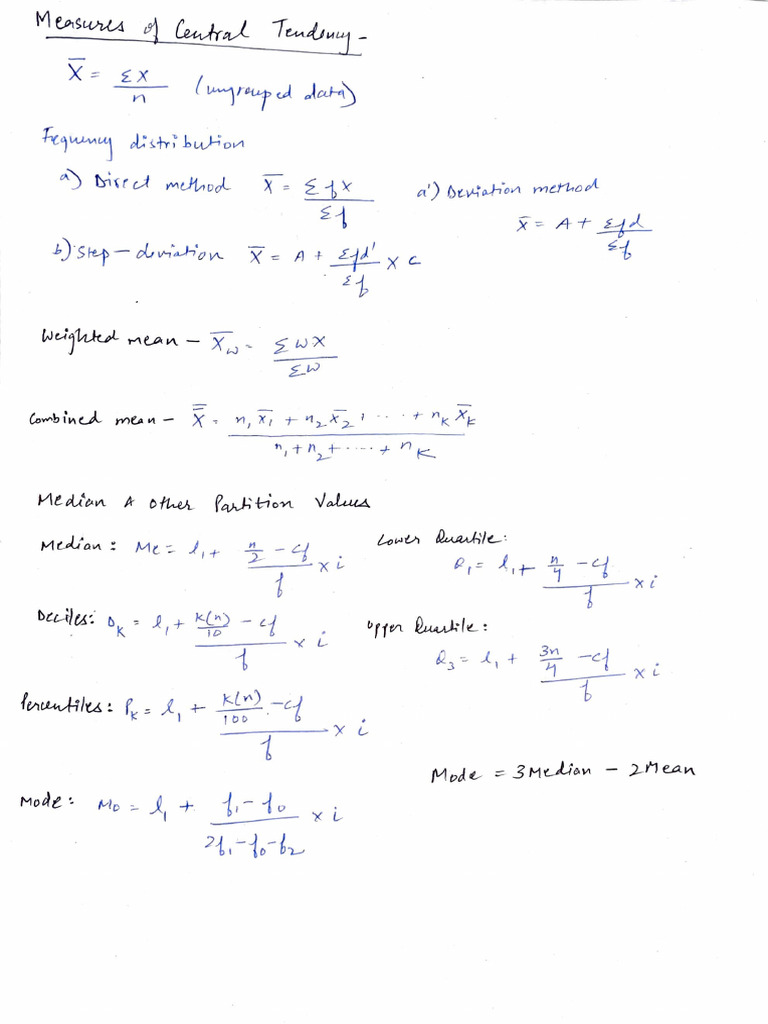 Measures of Central Tendency -
X̄ = ΣX / n (ungrouped data)
Frequency distribution
a) Direct method X̄ = Σfx / Σf
a') Deviation method
X̄ = A + Σfd / Σf
b) Step-deviation X̄ = A + Σfd' / Σf × c
Weighted mean - X̄w = ΣWX / ΣW
Combined mean - X̿ = n₁X̄₁ + n₂X̄₂ + .... + nₖX̄ₖ / n₁ + n₂ + ..... + nₖ
Median & Other Partition Values
Median: Me = l₁ + (n/2 - cf) / f × i
Lower Quartile:
Q₁ = l₁ + (n/4 - cf) / f × i
Deciles: Dₖ = l₁ + (k(n)/10 - cf) / f × i
Upper Quartile:
Q₃ = l₁ + (3n/4 - cf) / f × i
Percentiles: Pₖ = l₁ + (k(n)/100 - cf) / f × i
Mode = 3Median - 2Mean
Mode: Mo = l₁ + (f₁ - f₀) / (2f₁ - f₀ - f₂) × i